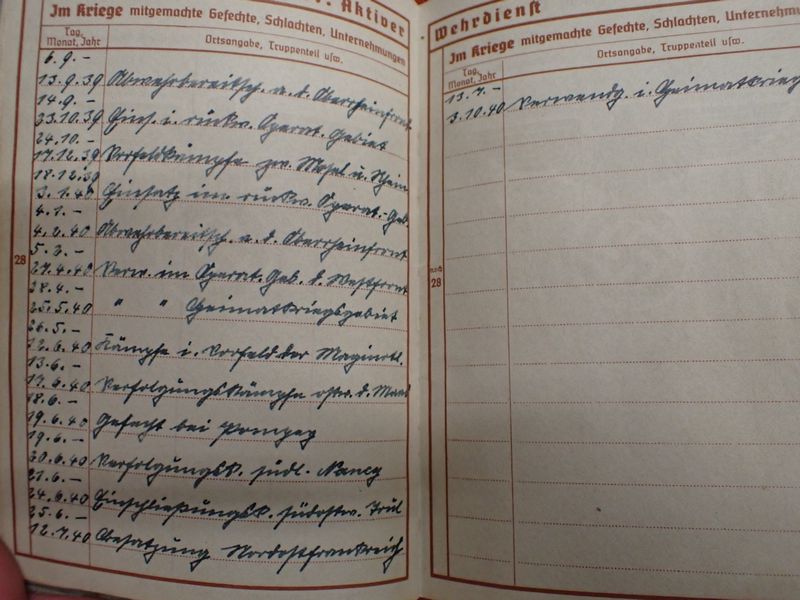 Aktiver
Im Kriege mitgemachte Gefechte, Schlachten, Unternehmungen
Tag,
Monat, Jahr
Ortsangabe, Truppenteil usw.
6.9.–
13.9.39 Abwehrbereitsch. a. d. Oberrheinfront
14.9.–
23.10.39 Eins. i. rückw. Operat. Gebiet
24.10.–
17.12.39 Vorfeldkämpfe zw. Mosel u. Rhein
18.12.39
3.1.40 Einsatz im rückw. Operat.-Geb.
4.1.–
4.2.40 Abwehrbereitsch. a. d. Oberrheinfront
5.2.–
27.4.40 Verw. im Operat. Geb. d. Westfront
28.4.–
25.5.40 " " Heimatkriegsgebiet
26.5.–
12.6.40 Kämpfe i. Vorfeld der Maginotl.
13.6.–
17.6.40 Verfolgungskämpfe ostw. d. Maas
18.6.–
19.6.40 Gefecht bei Pompey
19.6.–
20.6.40 Verfolgungsk. südl. Nancy
21.6.–
24.6.40 Einschließungsk. südostw. Toul
25.6.–
12.7.40 Besatzung Nordostfrankreich
28
Wehrdienst
Im Kriege mitgemachte Gefechte, Schlachten, Unternehmungen
Tag,
Monat, Jahr
Ortsangabe, Truppenteil usw.
13.7.–
3.10.40 Verwendg. i. Heimatkrieg
noch
28